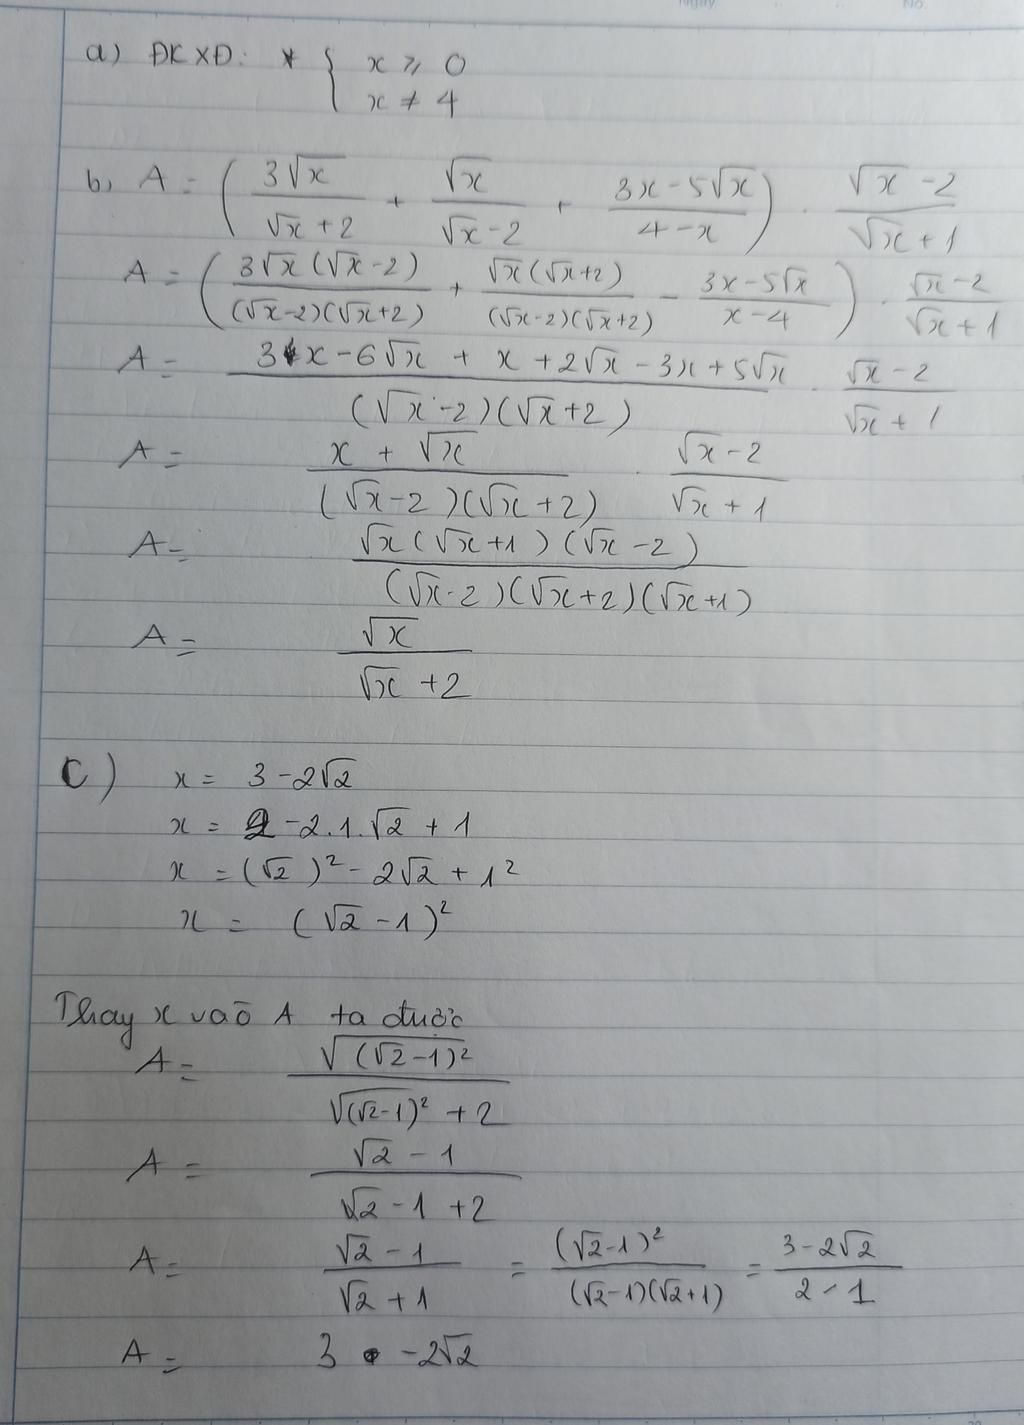 Ngày No.
a) ĐKXĐ: * { x ≥ 0
x ≠ 4
b, A = ( 3√x / (√x + 2) + √x / (√x - 2) + (3x - 5√x) / (4 - x) ) . (√x - 2) / (√x + 1)
A = ( 3√x (√x - 2) / (√x - 2)(√x + 2) + √x (√x + 2) / (√x - 2)(√x + 2) - (3x - 5√x) / (x - 4) ) . (√x - 2) / (√x + 1)
A = (3x - 6√x + x + 2√x - 3x + 5√x) / (√x - 2)(√x + 2) . (√x - 2) / (√x + 1)
A = (x + √x) / (√x - 2)(√x + 2) . (√x - 2) / (√x + 1)
A = √x (√x + 1)(√x - 2) / (√x - 2)(√x + 2)(√x + 1)
A = √x / (√x + 2)
c) x = 3 - 2√2
x = 2 - 2.1.√2 + 1
x = (√2)² - 2√2 + 1²
x = (√2 - 1)²
Thay x vào A ta được
A = √(√2 - 1)² / (√(√2 - 1)² + 2)
A = (√2 - 1) / (√2 - 1 + 2)
A = (√2 - 1) / (√2 + 1) = (√2 - 1)² / (√2 - 1)(√2 + 1) = (3 - 2√2) / (2 - 1)
A = 3 - 2√2